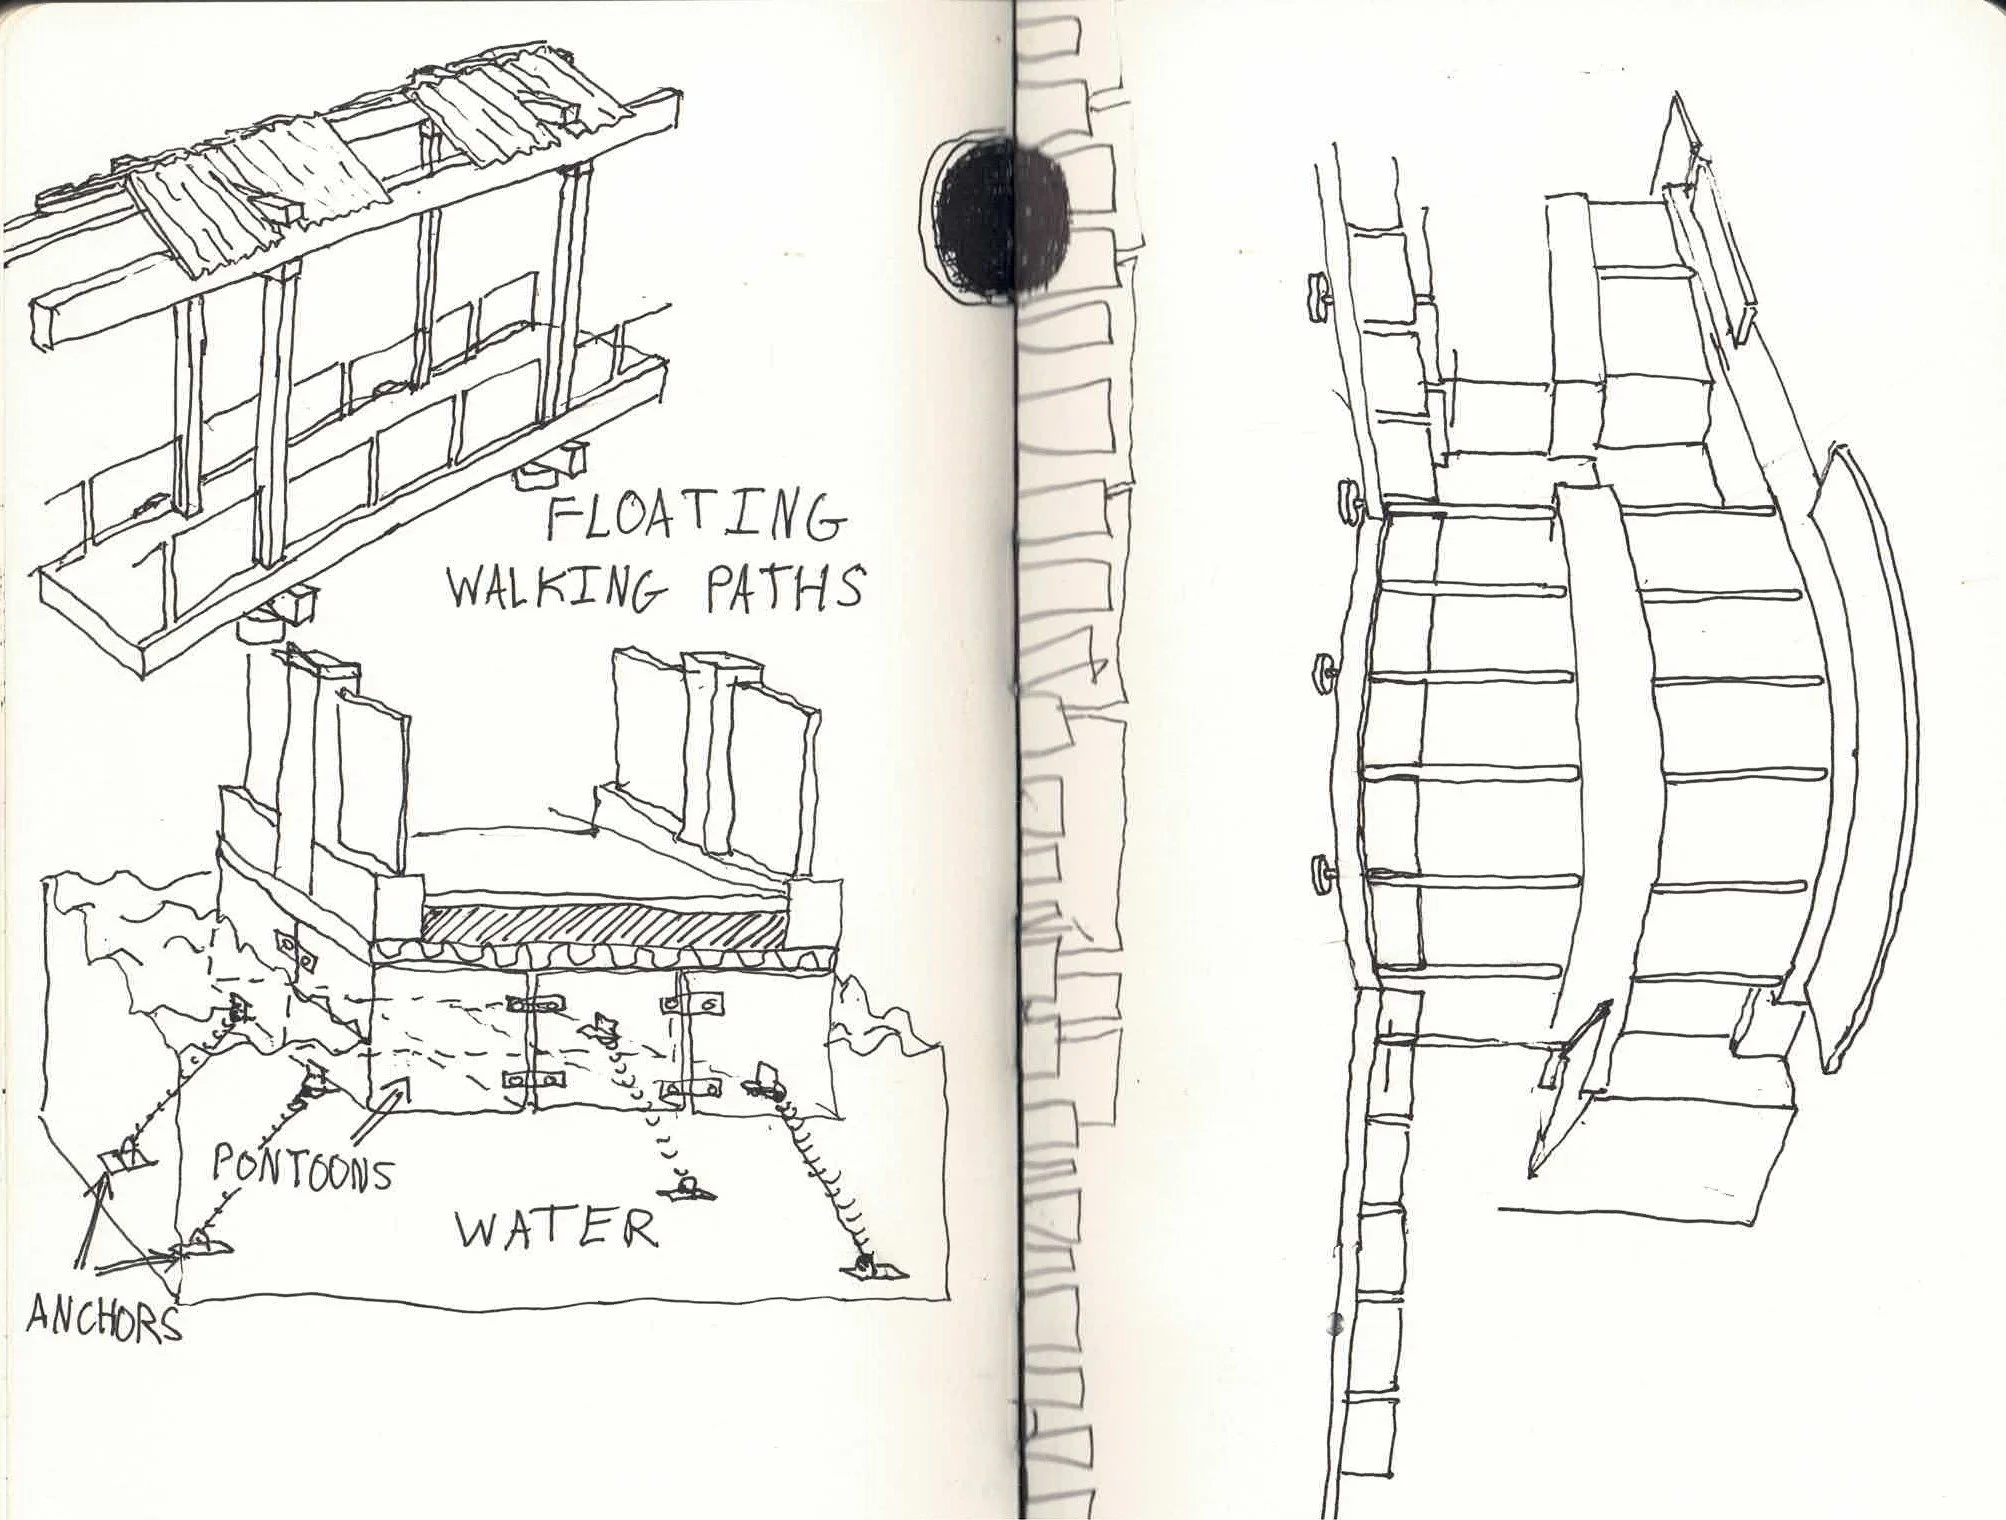 FLOATING
WALKING PATHS
PONTOONS
WATER
ANCHORS